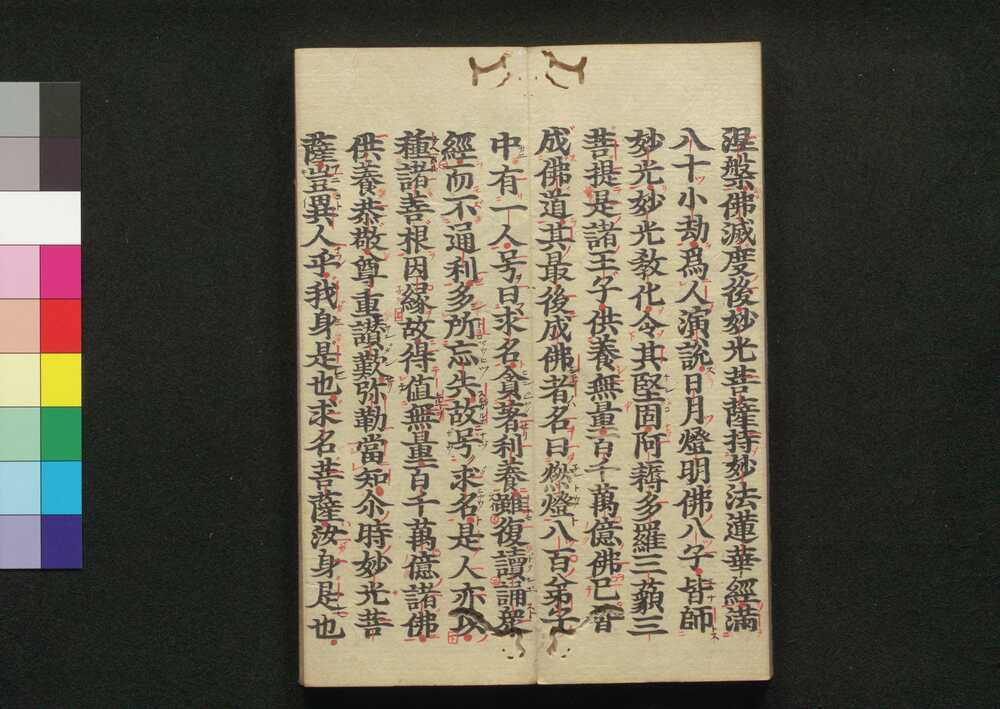 涅槃佛滅度後妙光菩薩持妙法蓮華經滿
八十小劫爲人演說日月燈明佛八子皆師
妙光妙光教化令其堅固阿耨多羅三藐三
菩提是諸王子供養無量百千萬億佛已皆
成佛道其最後成佛者名曰燃燈八百弟子
中有一人号曰求名貪著利養雖復讀誦衆
經而不通利多所忘失故号求名是人亦以
種諸善根因緣故得値無量百千萬億諸佛
供養恭敬尊重讃歎弥勒當知尒時妙光菩
薩豈異人乎我身是也求名菩薩汝身是也